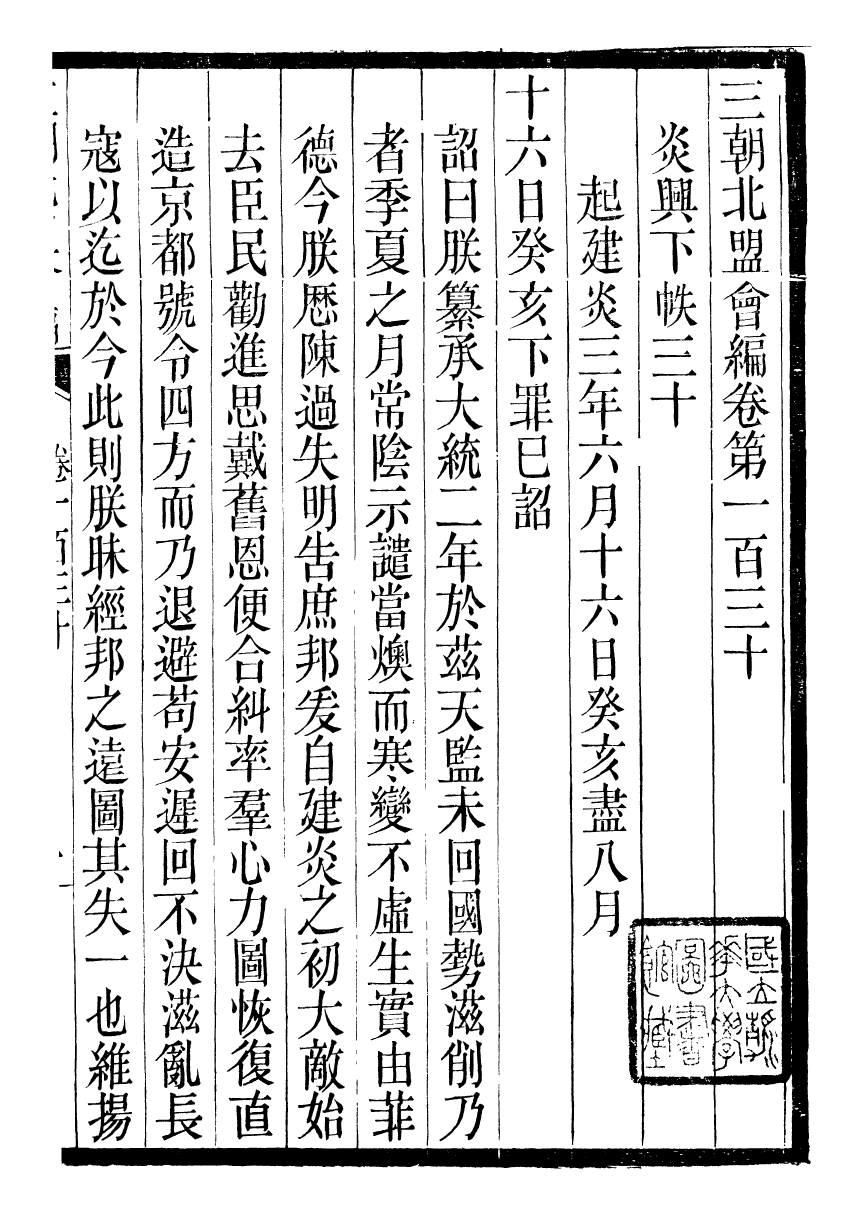 三朝北盟會編卷第一百三十
炎興下帙三十
起建炎三年六月十六日癸亥盡八月
十六日癸亥下罪已詔
詔曰朕纂承大統二年於茲天監未回國勢滋削乃
者季夏之月常陰示譴當燠而寒變不虛生實由菲
德今朕歷陳過失明告庶邦爰自建炎之初大敵始
去臣民勸進思戴舊恩便合糾率羣心力圖恢復直
造京都號令四方而乃退避苟安遲回不決滋亂長
寇以迄於今此則朕昧經邦之遠圖其失一也維揚
卷一百三十
國立清
華大學
圖書
館藏